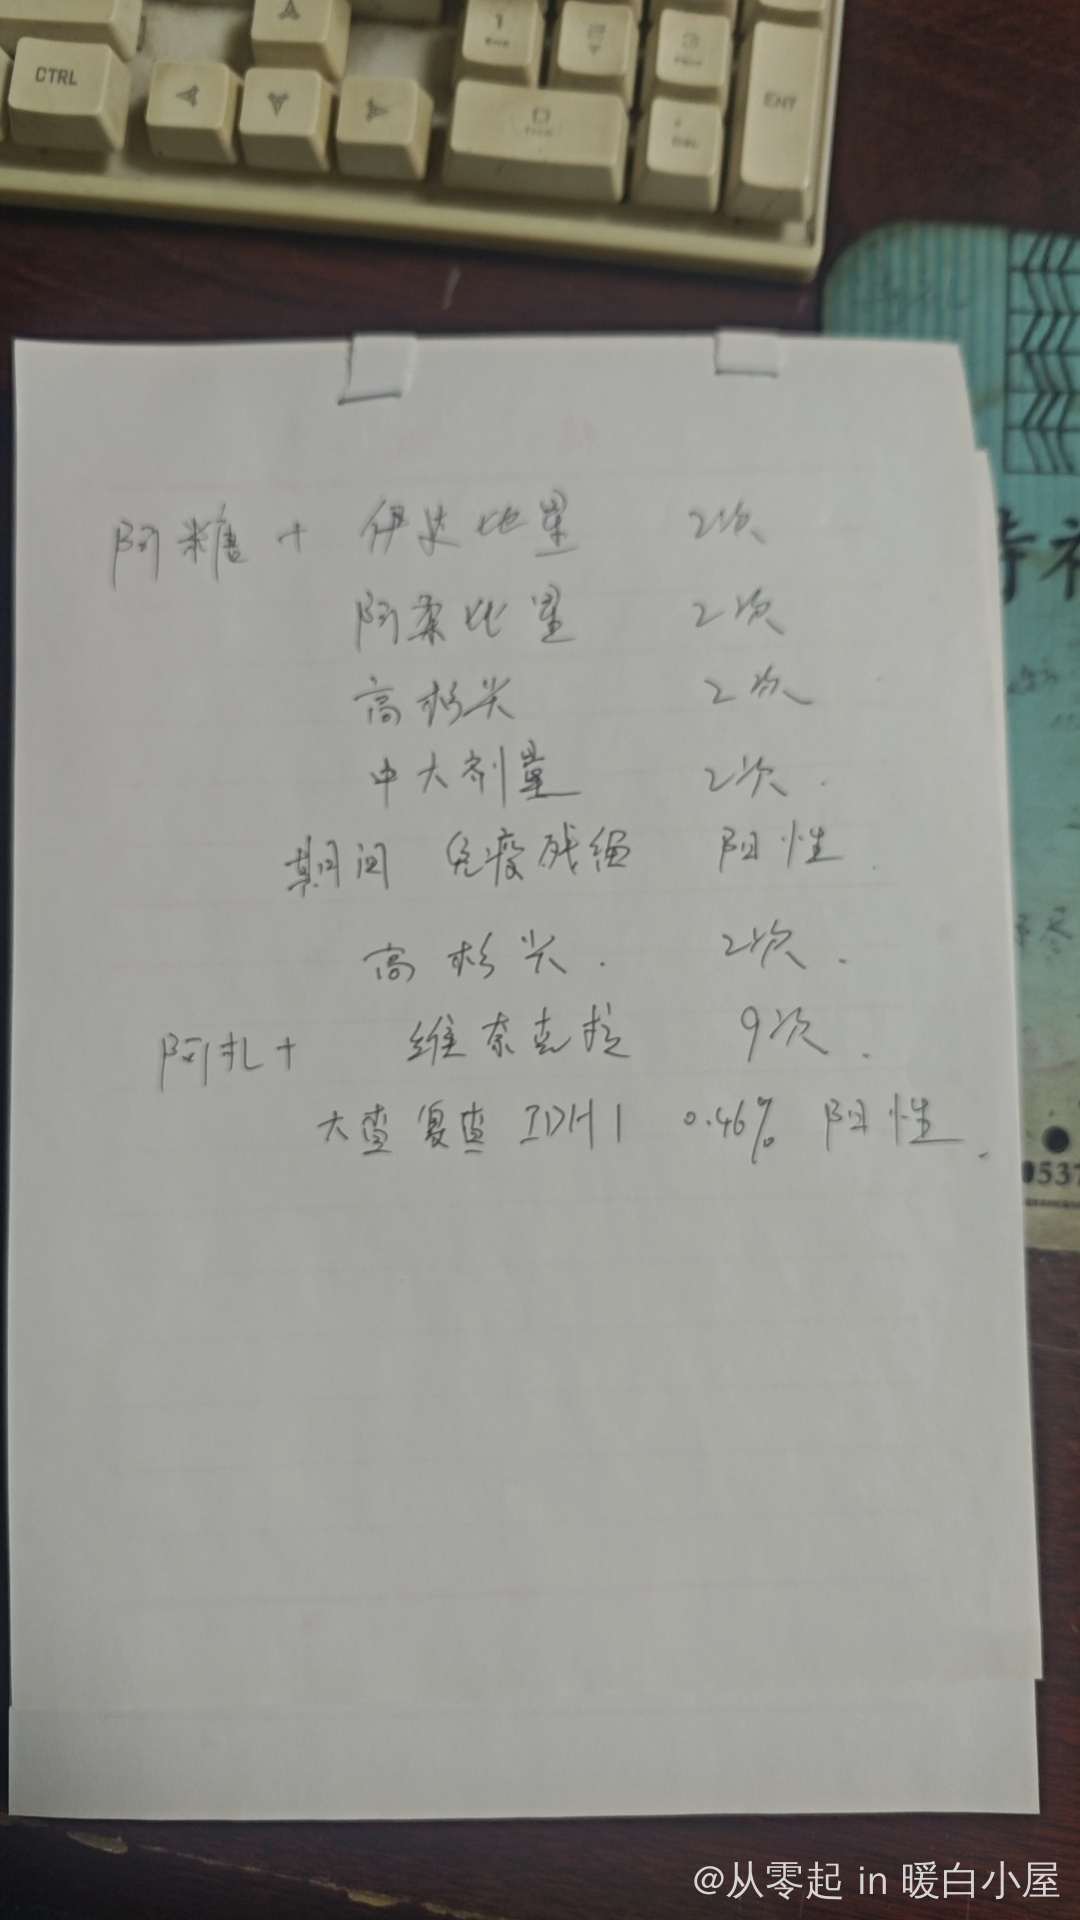 CTRL
1
End
2
3
ENT
0
DEL
阿糖 + 伊达比星 2次
阿柔比星 2次
高杉尖 2次
中大剂量 2次.
期间 免疫残细 阳性.
高杉尖. 2次.
阿扎+ 维奈克拉 9次.
大查复查 IDH1 0.46% 阳性.
0537
@从零起 in 暖白小屋